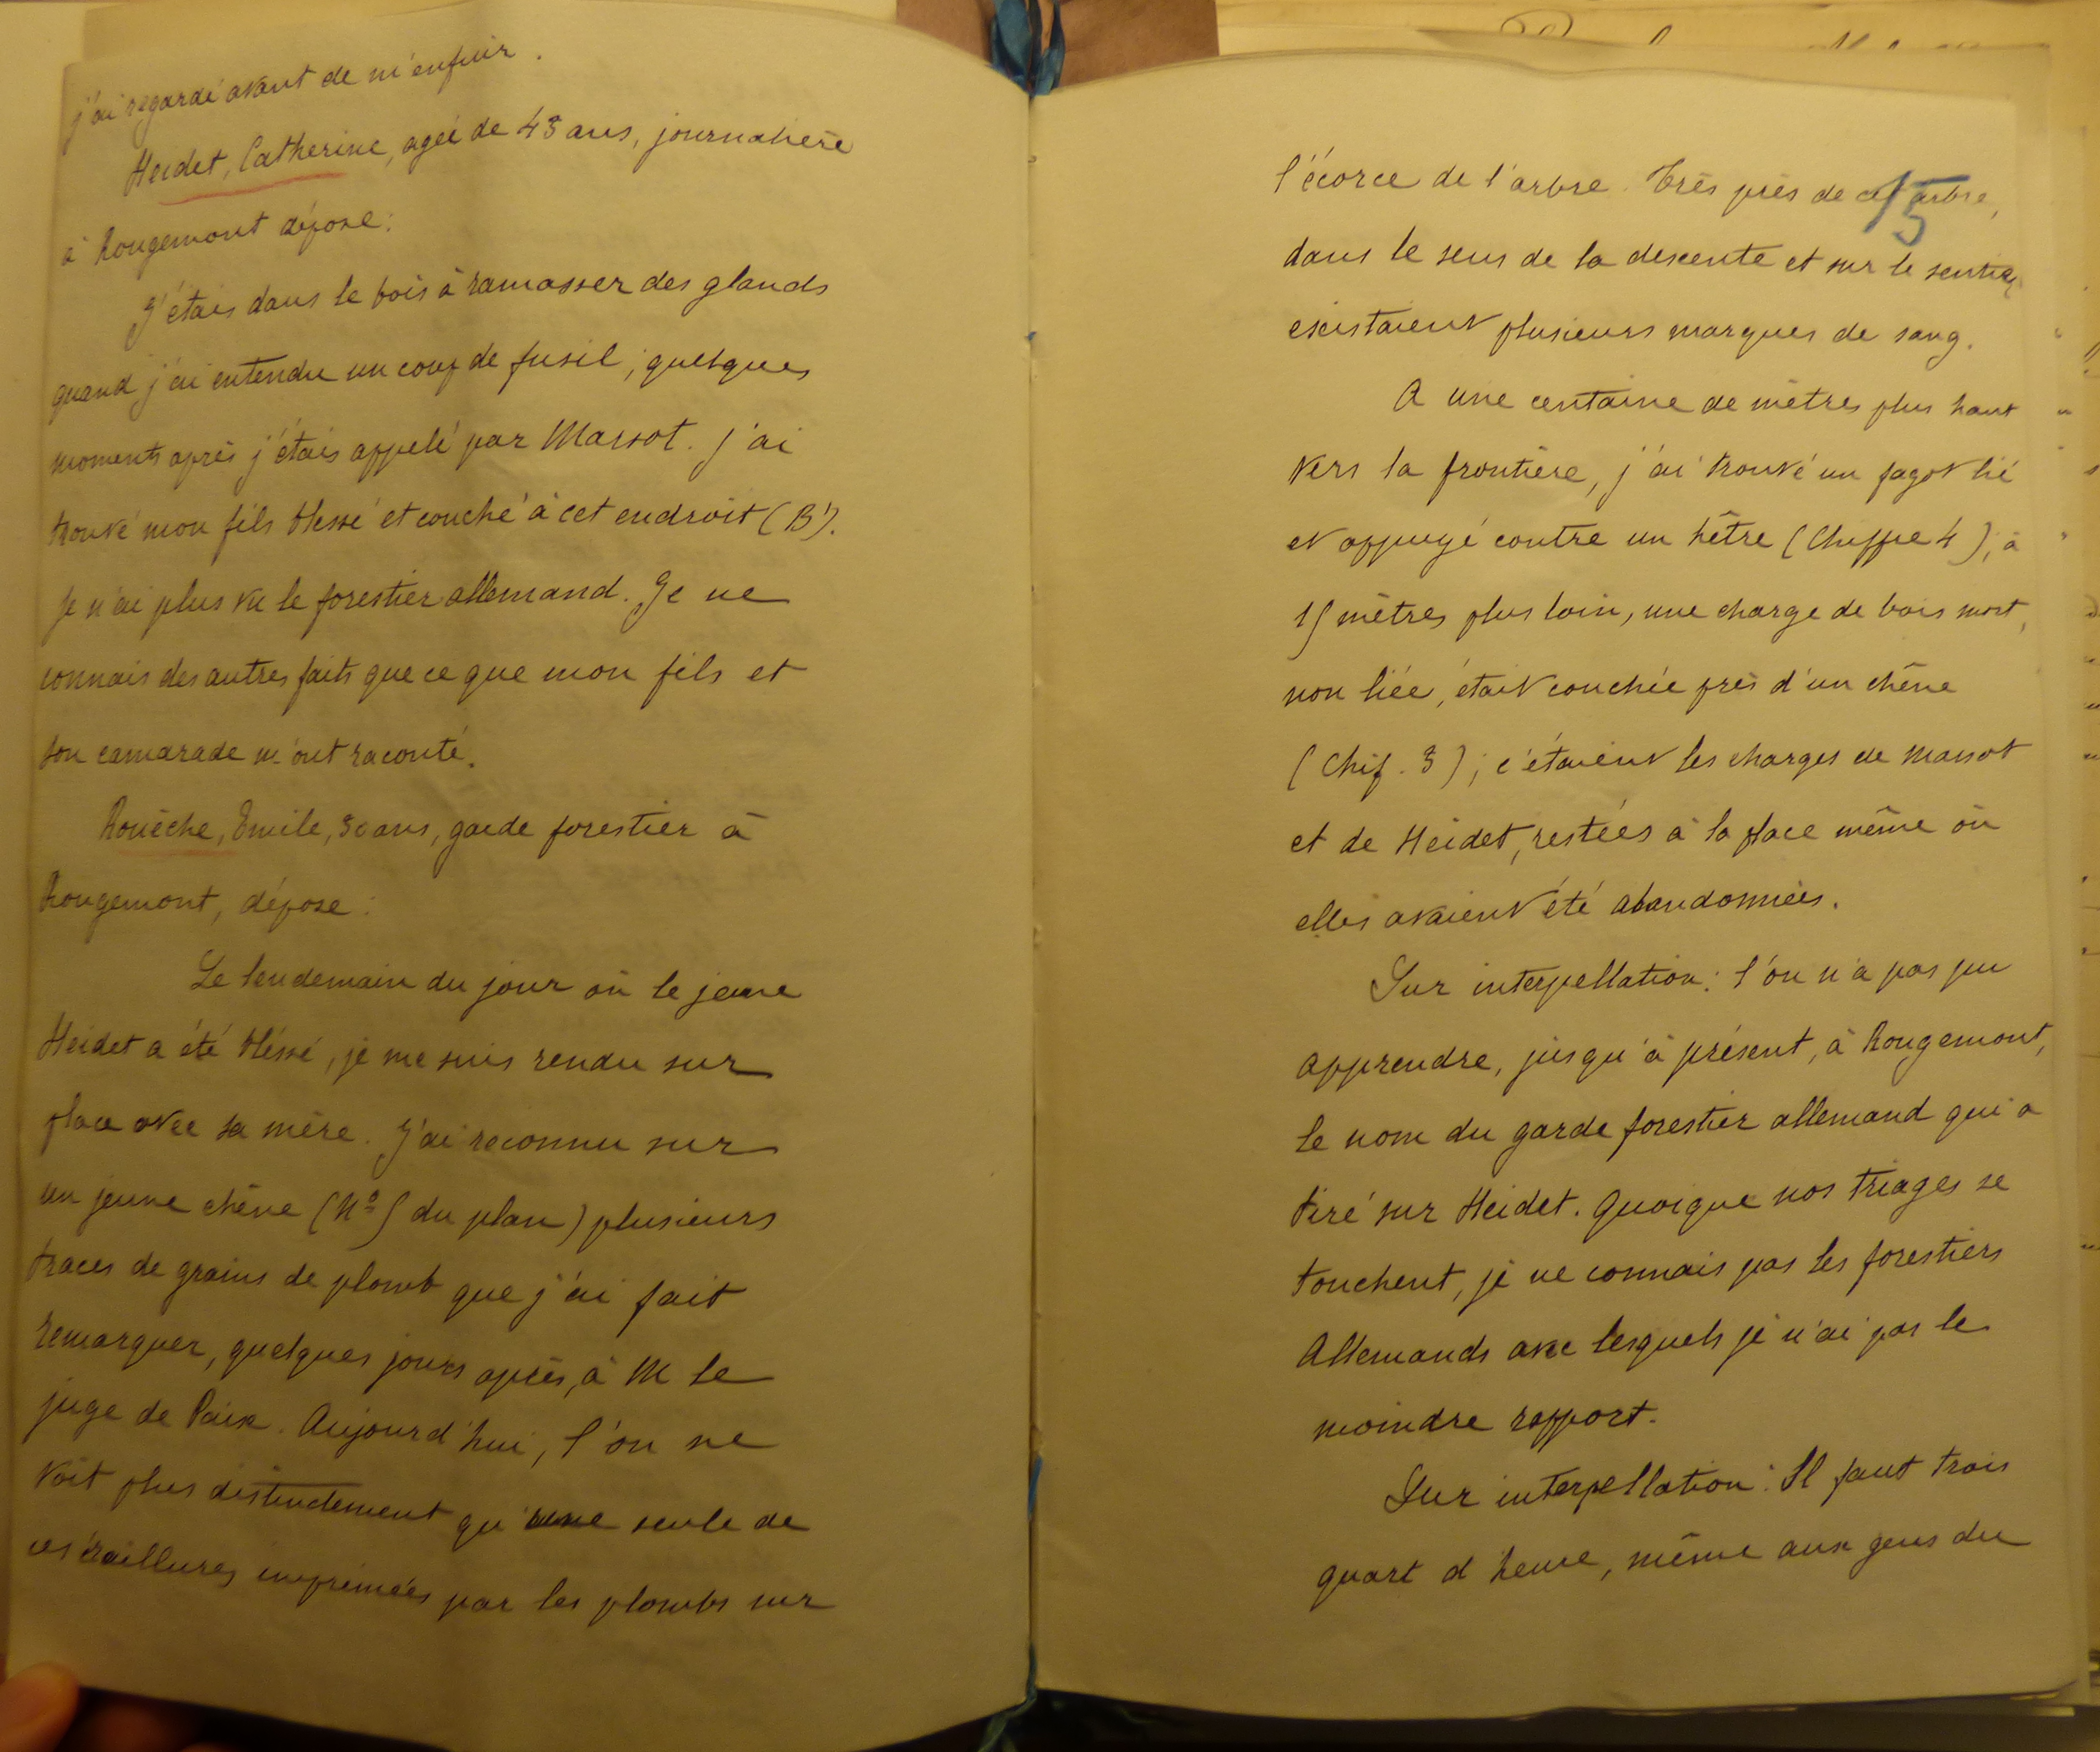 j'ai regardé avant de m'enfuir.
Heidet, Catherine, agée de 43 ans, journalière
à Rougemont dépose:
J'étais dans le bois à ramasser des glands
quand j'ai entendu un coup de fusil; quelques
moments après j'étais appelé par Marsot. J'ai
trouvé mon fils blessé et couché à cet endroit (B').
Je n'ai plus vu le forestier allemand. Je ne
connais des autres faits que ce que mon fils et
son camarade m'ont raconté.
Rouèche, Emile, 30 ans, garde forestier à
Rougemont, dépose:
Le lendemain du jour où le jeune
Heidet a été blessé, je me suis rendu sur
place avec sa mère. J'ai reconnu sur
un jeune chêne (No 5 du plan) plusieurs
traces de grains de plomb que j'ai fait
remarquer, quelques jours après, à M le
juge de Paix. Aujourd'hui, l'on ne
voit plus distinctement qu'une seule de
ces éraillures imprimées par les plombs sur
15
l'écorce de l'arbre. Très près de cet arbre,
dans le sens de la descente et sur le sentier,
existaient plusieurs marques de sang.
A une centaine de mètres plus haut
vers la frontière, j'ai trouvé un fagot lié
et appuyé contre un hêtre (Chiffre 4); à
15 mètres plus loin, une charge de bois mort,
non liée, était couchée près d'un chêne
(Chif. 3); c'étaient les charges de Marsot
et de Heidet, restées à la place même où
elles avaient été abandonnées.
Sur interpellation: l'on n'a pas pu
apprendre, jusqu'à présent, à Rougemont,
le nom du garde forestier allemand qui a
tiré sur Heidet. Quoique nos triages se
touchent, je ne connais pas les forestiers
Allemands avec lesquels je n'ai pas le
moindre rapport.
Sur interpellation: Il faut trois
quart d'heure, même aux gens du